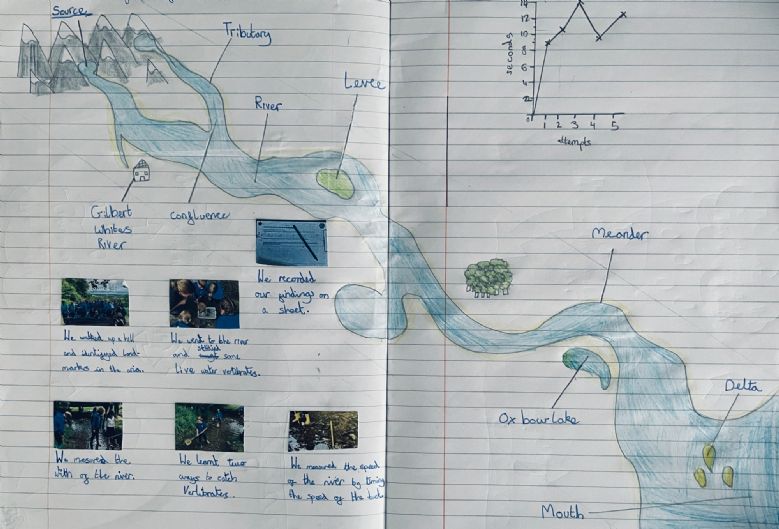 Source
Tributary
Levee
River
Gilbert
Whites
River
confluence
We recorded
our findings on
a sheet.
We walked up a hill
and identifyed land-
markes in the area.
We went to the river
and studied some
Live water vertibrates.
We mesured the
with of the river.
We learnt
ways to catch
Vertibrates.
We measured the speed
of the river by timing
the speed of the duck
seconds
14
12
10
8
6
4
2
0
1 2 3 4 5
attempts
Meander
Ox bow Lake
Delta
Mouth